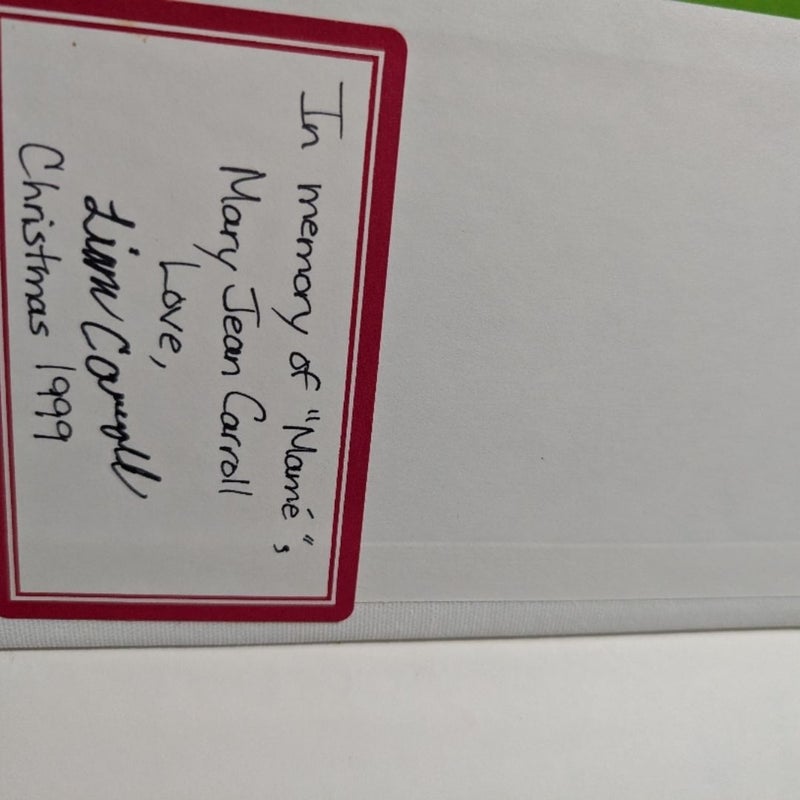 In memory of "Mamé",
Mary Jean Carroll
Love,
Liam Carroll
Christmas 1999